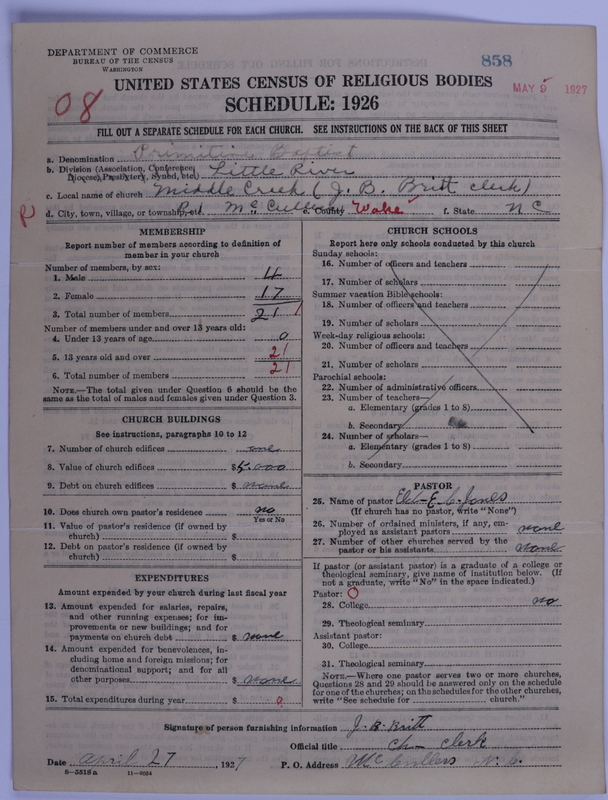 DEPARTMENT OF COMMERCE
BUREAU OF THE CENSUS
WASHINGTON
858
MAY 9 1927
08
UNITED STATES CENSUS OF RELIGIOUS BODIES
SCHEDULE: 1926
FILL OUT A SEPARATE SCHEDULE FOR EACH CHURCH. SEE INSTRUCTIONS ON THE BACK OF THIS SHEET
a. Denomination Primitive Baptist
b. Division (Association, Conference, Diocese, Presbytery, Synod, etc.) Little River
c. Local name of church Middle Creek (J. B. Britt clerk)
R d. City, town, village, or township, etc. McCullers e. County Wake f. State N C
MEMBERSHIP
Report number of members according to definition of member in your church
Number of members, by sex:
1. Male 4
2. Female 17
3. Total number of members 21
Number of members under and over 13 years old:
4. Under 13 years of age 0
5. 13 years old and over 21
6. Total number of members 21
NOTE.—The total given under Question 6 should be the same as the total of males and females given under Question 3.
CHURCH BUILDINGS
See instructions, paragraphs 10 to 12
7. Number of church edifices one
8. Value of church edifices $
9. Debt on church edifices $ none
10. Does church own pastor's residence no
Yes or No
11. Value of pastor's residence (if owned by church) $
12. Debt on pastor's residence (if owned by church) $
EXPENDITURES
Amount expended by your church during last fiscal year
13. Amount expended for salaries, repairs, and other running expenses; for improvements or new buildings; and for payments on church debt $ none
14. Amount expended for benevolences, including home and foreign missions; for denominational support; and for all other purposes $ none
15. Total expenditures during year $ 0
CHURCH SCHOOLS
Report here only schools conducted by this church
Sunday schools:
16. Number of officers and teachers
17. Number of scholars
Summer vacation Bible schools:
18. Number of officers and teachers
19. Number of scholars
Week-day religious schools:
20. Number of officers and teachers
21. Number of scholars
Parochial schools:
22. Number of administrative officers
23. Number of teachers—
a. Elementary (grades 1 to 8)
b. Secondary
24. Number of scholars—
a. Elementary (grades 1 to 8)
b. Secondary
PASTOR
25. Name of pastor Eld. E. C. Jones
(If church has no pastor, write "None")
26. Number of ordained ministers, if any, employed as assistant pastors none
27. Number of other churches served by the pastor or his assistants none
If pastor (or assistant pastor) is a graduate of a college or theological seminary, give name of institution below. (If not a graduate, write "No" in the space indicated.)
Pastor: 0
28. College no
29. Theological seminary
Assistant pastor:
30. College
31. Theological seminary
NOTE.—Where one pastor serves two or more churches, Questions 28 and 29 should be answered only on the schedule for one of the churches; on the schedules for the other churches, write "See schedule for church."
Signature of person furnishing information J. B. Britt
Official title Ch. clerk
Date April 27, 1927 P. O. Address McCullers N. C.
8-5518a 11-9034